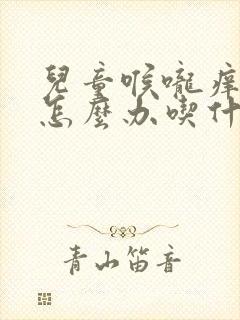 兒童喉嚨癢
怎麼办喫什
青山笛音